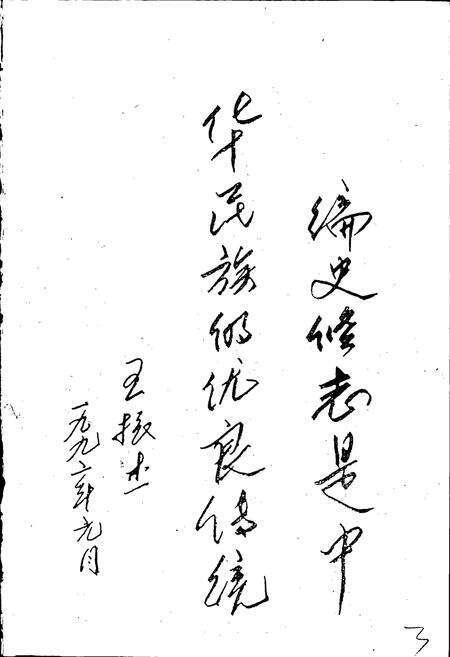 编史修志是中
华民族的优良传统
王振杰
一九九六年元月
3